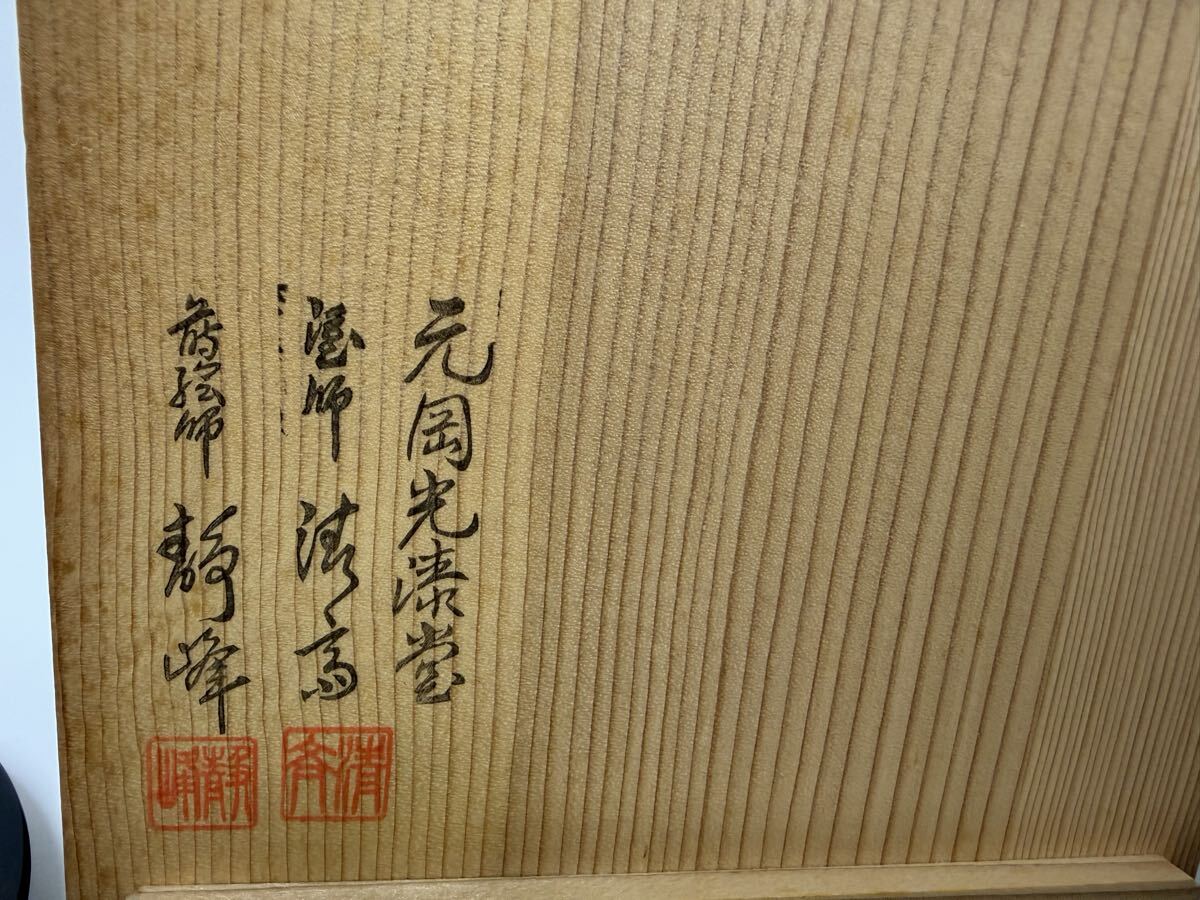 元岡光漆堂
塗師 清斉
蒔絵師 静峰
清斉
静峰